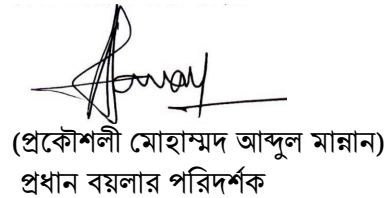 (প্রকৌশলী মোহাম্মদ আব্দুল মান্নান)
প্রধান বয়লার পরিদর্শক